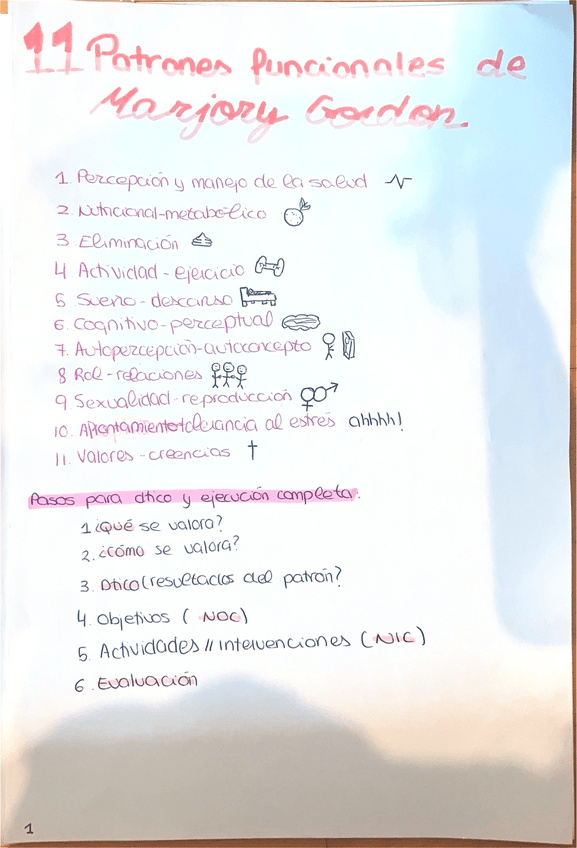 11 Patrones funcionales de
Marjory Gordon.
1. Percepción y manejo de la salud
2. Nutricional-metabólico
3. Eliminación
4. Actividad - ejercicio
5. Sueño - descanso
6. Cognitivo - perceptual
7. Autopercepción-autoconcepto
8. Rol - relaciones
9. Sexualidad - reproducción
10. Afrontamiento-tolerancia al estrés ahhhh!
11. Valores - creencias
Pasos para dtico y ejecución completa.
1. ¿Qué se valora?
2. ¿cómo se valora?
3. Dtico (resultados del patrón?
4. Objetivos ( NOC)
5. Actividades // intervenciones (NIC)
6. Evaluación
1